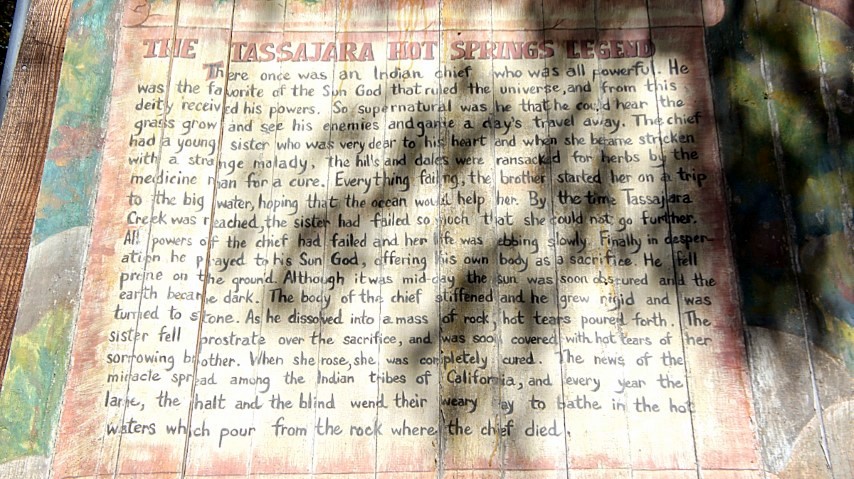 THE TASSAJARA HOT SPRINGS LEGEND
There once was an Indian chief who was all powerful. He
was the favorite of the Sun God that ruled the universe, and from this
deity received his powers. So supernatural was he that he could hear the
grass grow and see his enemies and game a day's travel away. The chief
had a young sister who was very dear to his heart and when she became stricken
with a strange malady, the hills and dales were ransacked for herbs by the
medicine man for a cure. Everything failing, the brother started her on a trip
to the big water, hoping that the ocean would help her. By the time Tassajara
Creek was reached, the sister had failed so much that she could not go further.
All powers of the chief had failed and her life was ebbing slowly. Finally in desper-
ation he prayed to his Sun God, offering his own body as a sacrifice. He fell
prone on the ground. Although it was mid-day the sun was soon obscured and the
earth became dark. The body of the chief stiffened and he grew rigid and was
turned to stone. As he dissolved into a mass of rock, hot tears poured forth. The
sister fell prostrate over the sacrifice, and was soon covered with hot tears of her
sorrowing brother. When she rose, she was completely cured. The news of the
miracle spread among the Indian tribes of California, and every year the
lame, the halt and the blind wend their weary way to bathe in the hot
waters which pour from the rock where the chief died.